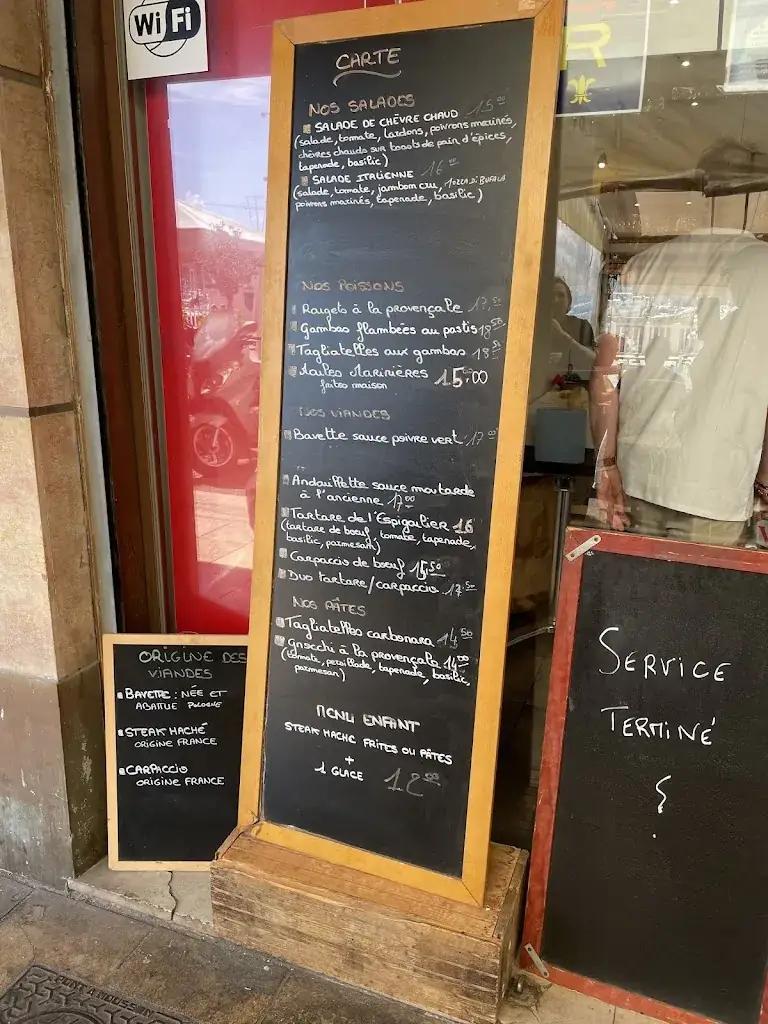 WiFi
R
CARTE
NOS SALADES
SALADE DE CHÈVRE CHAUD 15.00
(salade, tomate, lardons, poivrons marinés,
chèvres chauds sur toasts de pain d'épices,
tapenade, basilic)
SALADE ITALIENNE 16.00
(salade, tomate, jambom cru, MOZZA DI BUFALA
poivrons marinés, tapenade, basilic)
NOS POISSONS
Rougets à la provençale 17,50
Gambas flambées au pastis 18.50
Tagliatelles aux gambas 18.50
Moules Marinières 15.00
frites maison
NOS VIANDES
Bavette sauce poivre vert 17.00
Andouillette sauce moutarde
à l'ancienne 17.00
Tartare de l'Espigoulier 16
(tartare de boeuf, tomate, tapenade,
basilic, parmesan)
Carpaccio de boeuf 15.50
Duo tartare/carpaccio 17.50
NOS PÂTES
Tagliatelles carbonara 14.50
Gnocchi à la provençale 14.00
(tomate, persillade, tapenade, basilic,
parmesan)
MENU ENFANT
STEAK HACHE FRITES OU PÂTES
+
1 GLACE 12.00
ORIGINE DES
VIANDES
BAVETTE : NÉE ET
ABATTUE POLOGNE
STEAK HACHÉ
ORIGINE FRANCE
CARPACCIO
ORIGINE FRANCE
SERVICE
TERMINÉ
PONT A MOUSSON